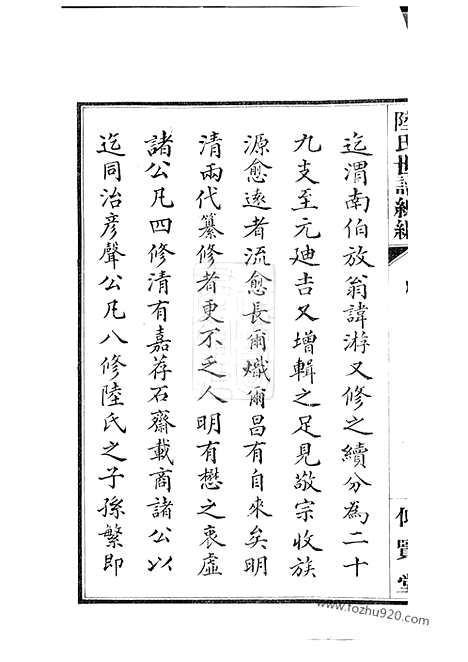 陸氏世譜續編
迄渭南伯放翁諱游又修之續分為二十
九支至元廸吉又增輯之足見敬宗收族
源愈遠者流愈長爾熾爾昌有自來矣明
清兩代纂修者更不乏人明有懋之衷虛
諸公凡四修清有嘉荐石齋載商諸公以
迄同治彥聲公凡八修陸氏之子孫繁即
賢堂
www.fozhu920.com